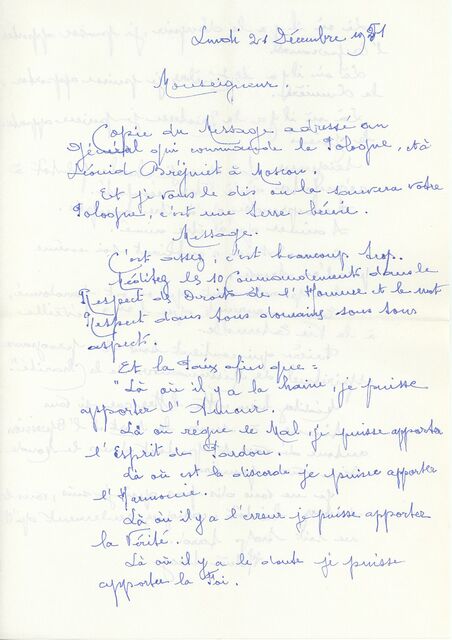 Lundi 21 Décembre 1981
Monseigneur.
Copie du Message adressé au
Général qui commande la Pologne, et à
Léonid Bréjniet à Moscou.
Et je vous le dis on la sauvera votre
Pologne, c'est une terre bénie.
Message.
C'est assez, c'est beaucoup trop.
Méditez les 10 Commandements dans le
Respect des Droits de l'Homme et le mot
Respect dans tous domaines sous tous
aspects.
Et la Paix afin que =
"Là où il y a la haine, je puisse
apporter l'Amour.
Là où règne le Mal, je puisse apporter
l'Esprit de Pardon.
Là où est la discorde je puisse apporter
l'Harmonie.
Là où il y a l'erreur je puisse apporter
la Vérité.
Là où il y a le doute je puisse
apporter la Foi.